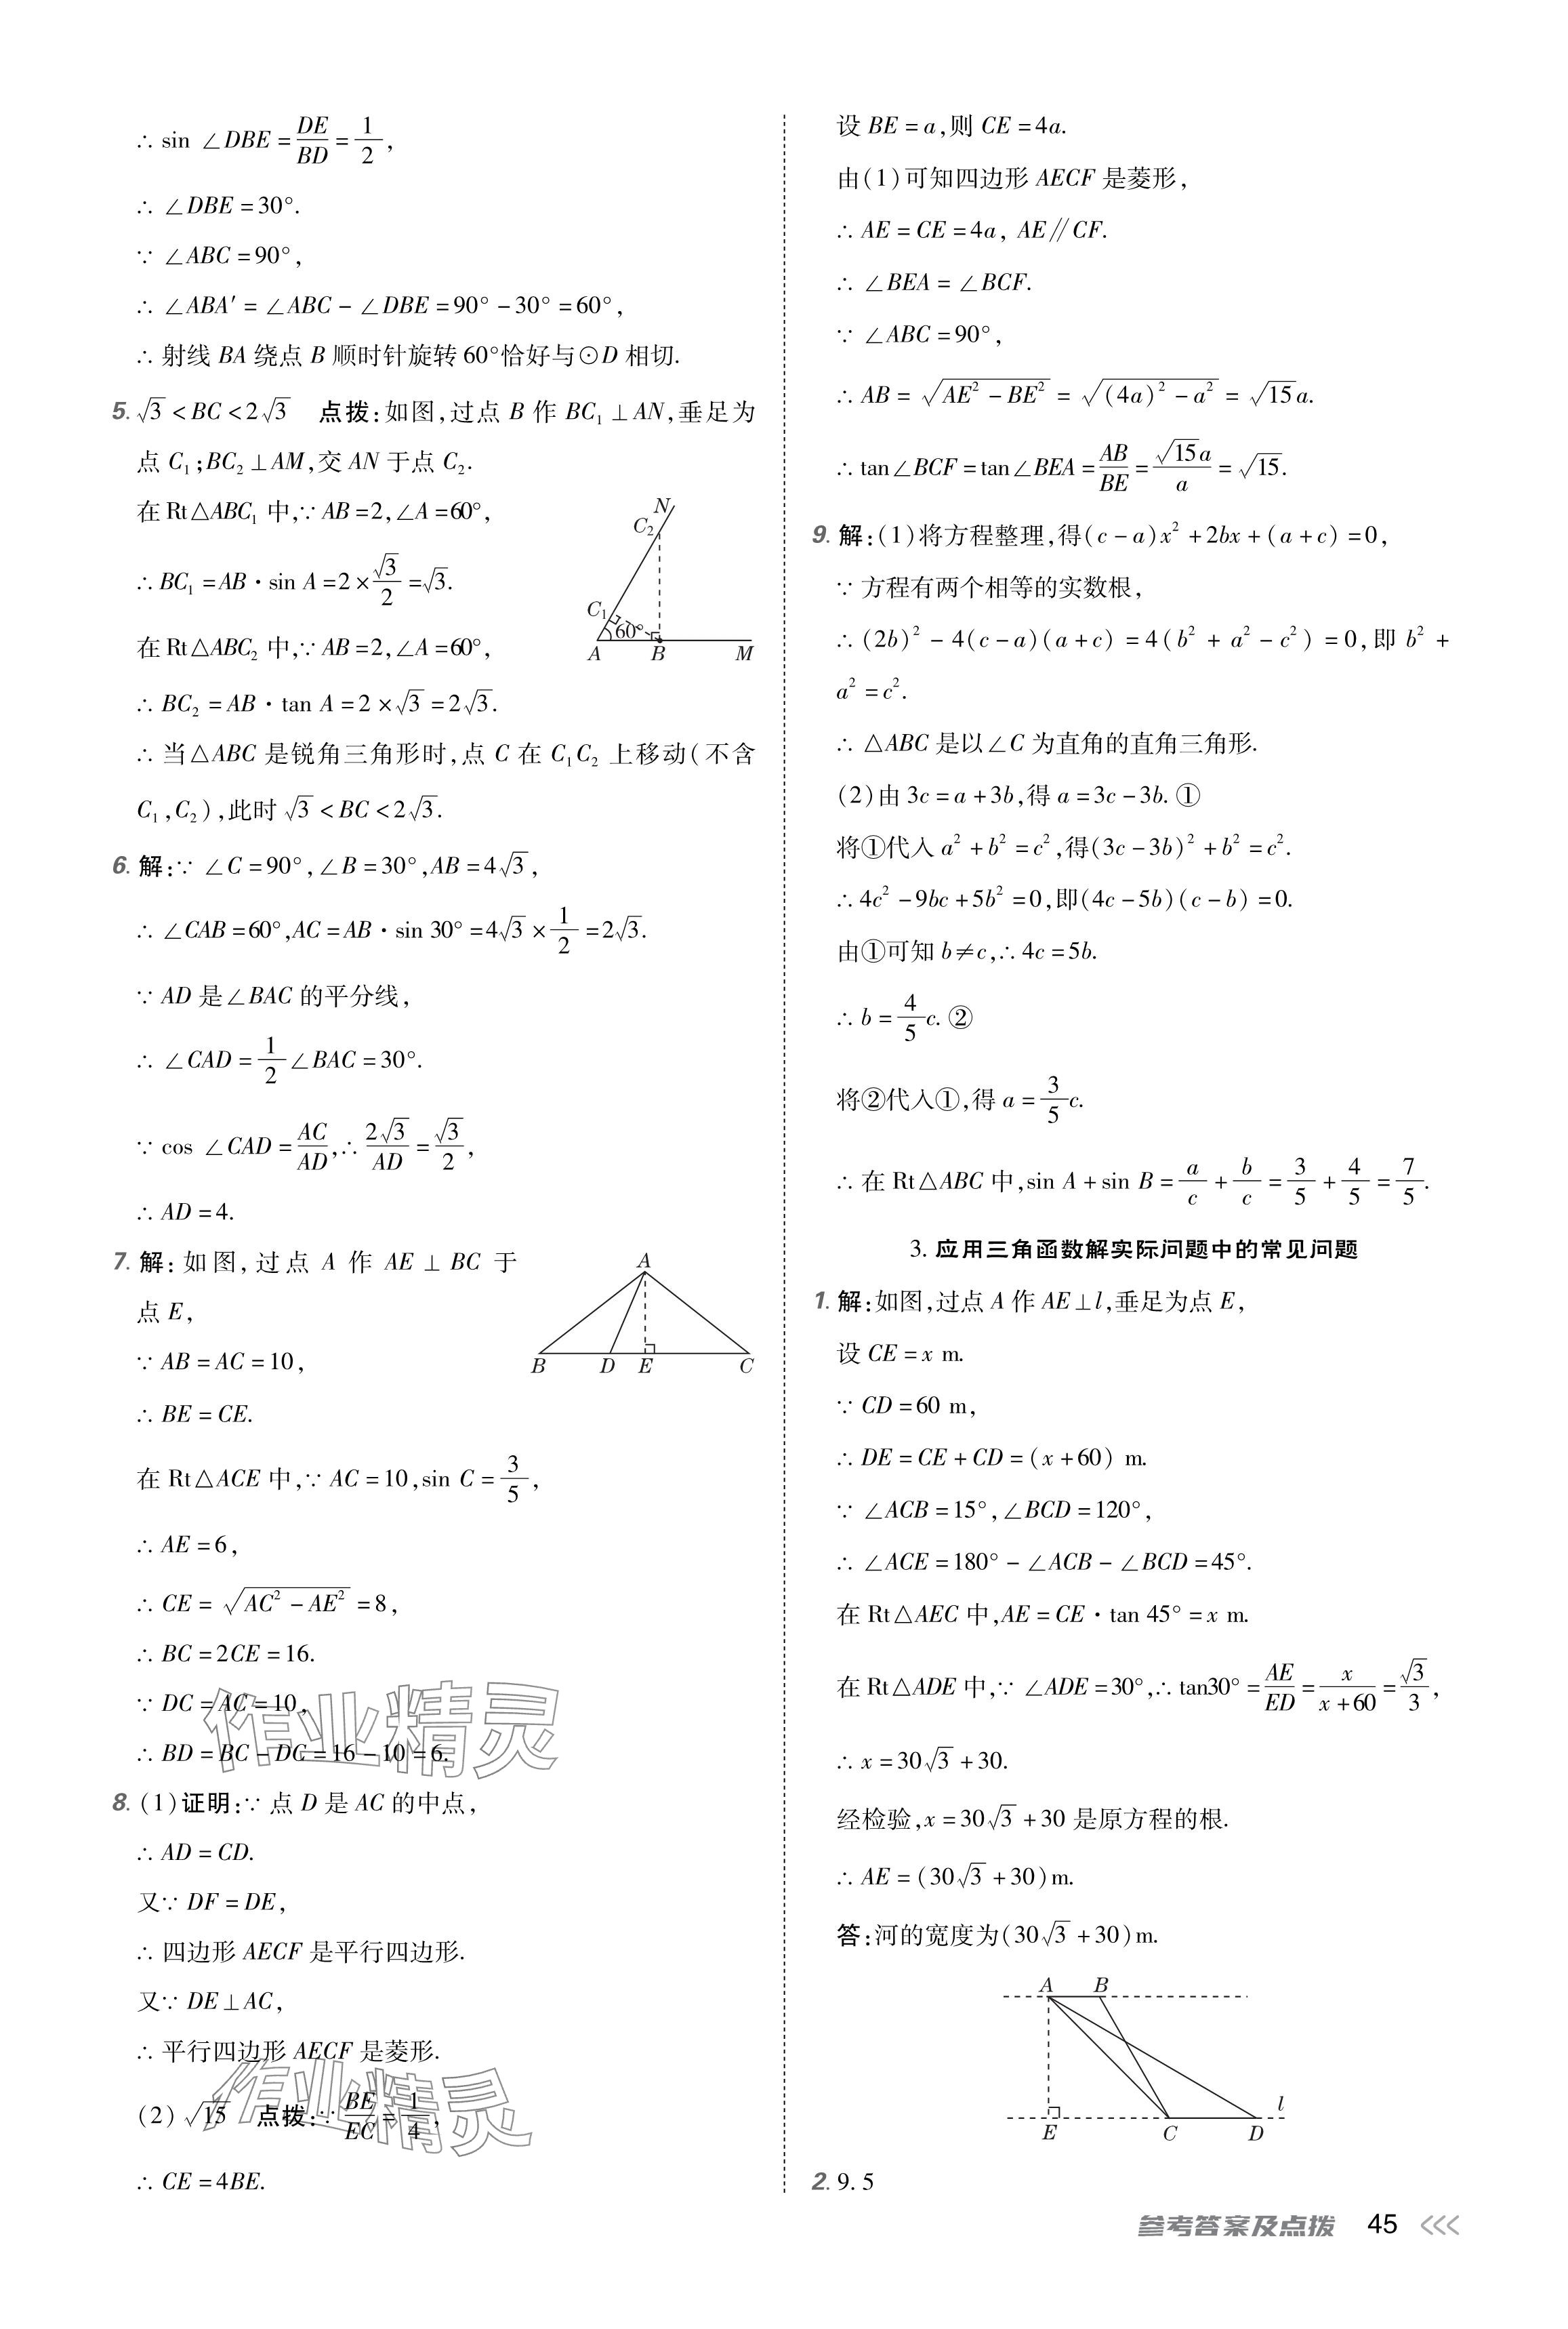 ∴ sin ∠DBE = DE/BD = 1/2,
∴ ∠DBE = 30°.
∵ ∠ABC = 90°,
∴ ∠ABA′ = ∠ABC - ∠DBE = 90° - 30° = 60°,
∴ 射线 BA 绕点 B 顺时针旋转 60°恰好与⊙D 相切.
5. √3 < BC < 2√3 点拨:如图,过点 B 作 BC₁ ⊥ AN,垂足为
点 C₁;BC₂ ⊥ AM,交 AN 于点 C₂.
在 Rt△ABC₁ 中,∵ AB = 2,∠A = 60°,
∴ BC₁ = AB · sin A = 2 × √3/2 = √3.
在 Rt△ABC₂ 中,∵ AB = 2,∠A = 60°,
N
C₂
C₁
60°
A B M
∴ BC₂ = AB · tan A = 2 × √3 = 2√3.
∴ 当△ABC 是锐角三角形时,点 C 在 C₁C₂ 上移动(不含
C₁,C₂),此时 √3 < BC < 2√3.
6. 解:∵ ∠C = 90°,∠B = 30°,AB = 4√3,
∴ ∠CAB = 60°,AC = AB · sin 30° = 4√3 × 1/2 = 2√3.
∵ AD 是∠BAC 的平分线,
∴ ∠CAD = 1/2 ∠BAC = 30°.
∵ cos ∠CAD = AC/AD,∴ 2√3/AD = √3/2,
∴ AD = 4.
7. 解:如图,过点 A 作 AE ⊥ BC 于
点 E,
∵ AB = AC = 10,
∴ BE = CE.
A
B D E C
在 Rt△ACE 中,∵ AC = 10,sin C = 3/5,
∴ AE = 6,
∴ CE = √(AC² - AE²) = 8,
∴ BC = 2CE = 16.
∵ DC = AC = 10,
∴ BD = BC - DC = 16 - 10 = 6.
作业精灵
8. (1)证明:∵ 点 D 是 AC 的中点,
∴ AD = CD.
又∵ DF = DE,
∴ 四边形 AECF 是平行四边形.
又∵ DE ⊥ AC,
∴ 平行四边形 AECF 是菱形.
(2) √15 点拨:∵ BE/EC = 1/4,
作业精灵
∴ CE = 4BE.
设 BE = a,则 CE = 4a.
由(1)可知四边形 AECF 是菱形,
∴ AE = CE = 4a, AE∥CF.
∴ ∠BEA = ∠BCF.
∵ ∠ABC = 90°,
∴ AB = √(AE² - BE²) = √((4a)² - a²) = √15 a.
∴ tan∠BCF = tan∠BEA = AB/BE = √15a/a = √15.
9. 解:(1)将方程整理,得(c - a)x² + 2bx + (a + c) = 0,
∵ 方程有两个相等的实数根,
∴ (2b)² - 4(c - a)(a + c) = 4(b² + a² - c²) = 0,即 b² +
a² = c².
∴ △ABC 是以∠C 为直角的直角三角形.
(2)由 3c = a + 3b,得 a = 3c - 3b. ①
将①代入 a² + b² = c²,得(3c - 3b)² + b² = c².
∴ 4c² - 9bc + 5b² = 0,即(4c - 5b)(c - b) = 0.
由①可知 b ≠ c,∴ 4c = 5b.
∴ b = 4/5 c. ②
将②代入①,得 a = 3/5 c.
∴ 在 Rt△ABC 中,sin A + sin B = a/c + b/c = 3/5 + 4/5 = 7/5.
3. 应用三角函数解实际问题中的常见问题
1. 解:如图,过点 A 作 AE ⊥ l,垂足为点 E,
设 CE = x m.
∵ CD = 60 m,
∴ DE = CE + CD = (x + 60) m.
∵ ∠ACB = 15°,∠BCD = 120°,
∴ ∠ACE = 180° - ∠ACB - ∠BCD = 45°.
在 Rt△AEC 中,AE = CE · tan 45° = x m.
在 Rt△ADE 中,∵ ∠ADE = 30°,∴ tan30° = AE/ED = x/(x + 60) = √3/3,
∴ x = 30√3 + 30.
经检验,x = 30√3 + 30 是原方程的根.
∴ AE = (30√3 + 30)m.
答:河的宽度为(30√3 + 30)m.
A B
l
E C D
2. 9.5
参考答案及点拨 45